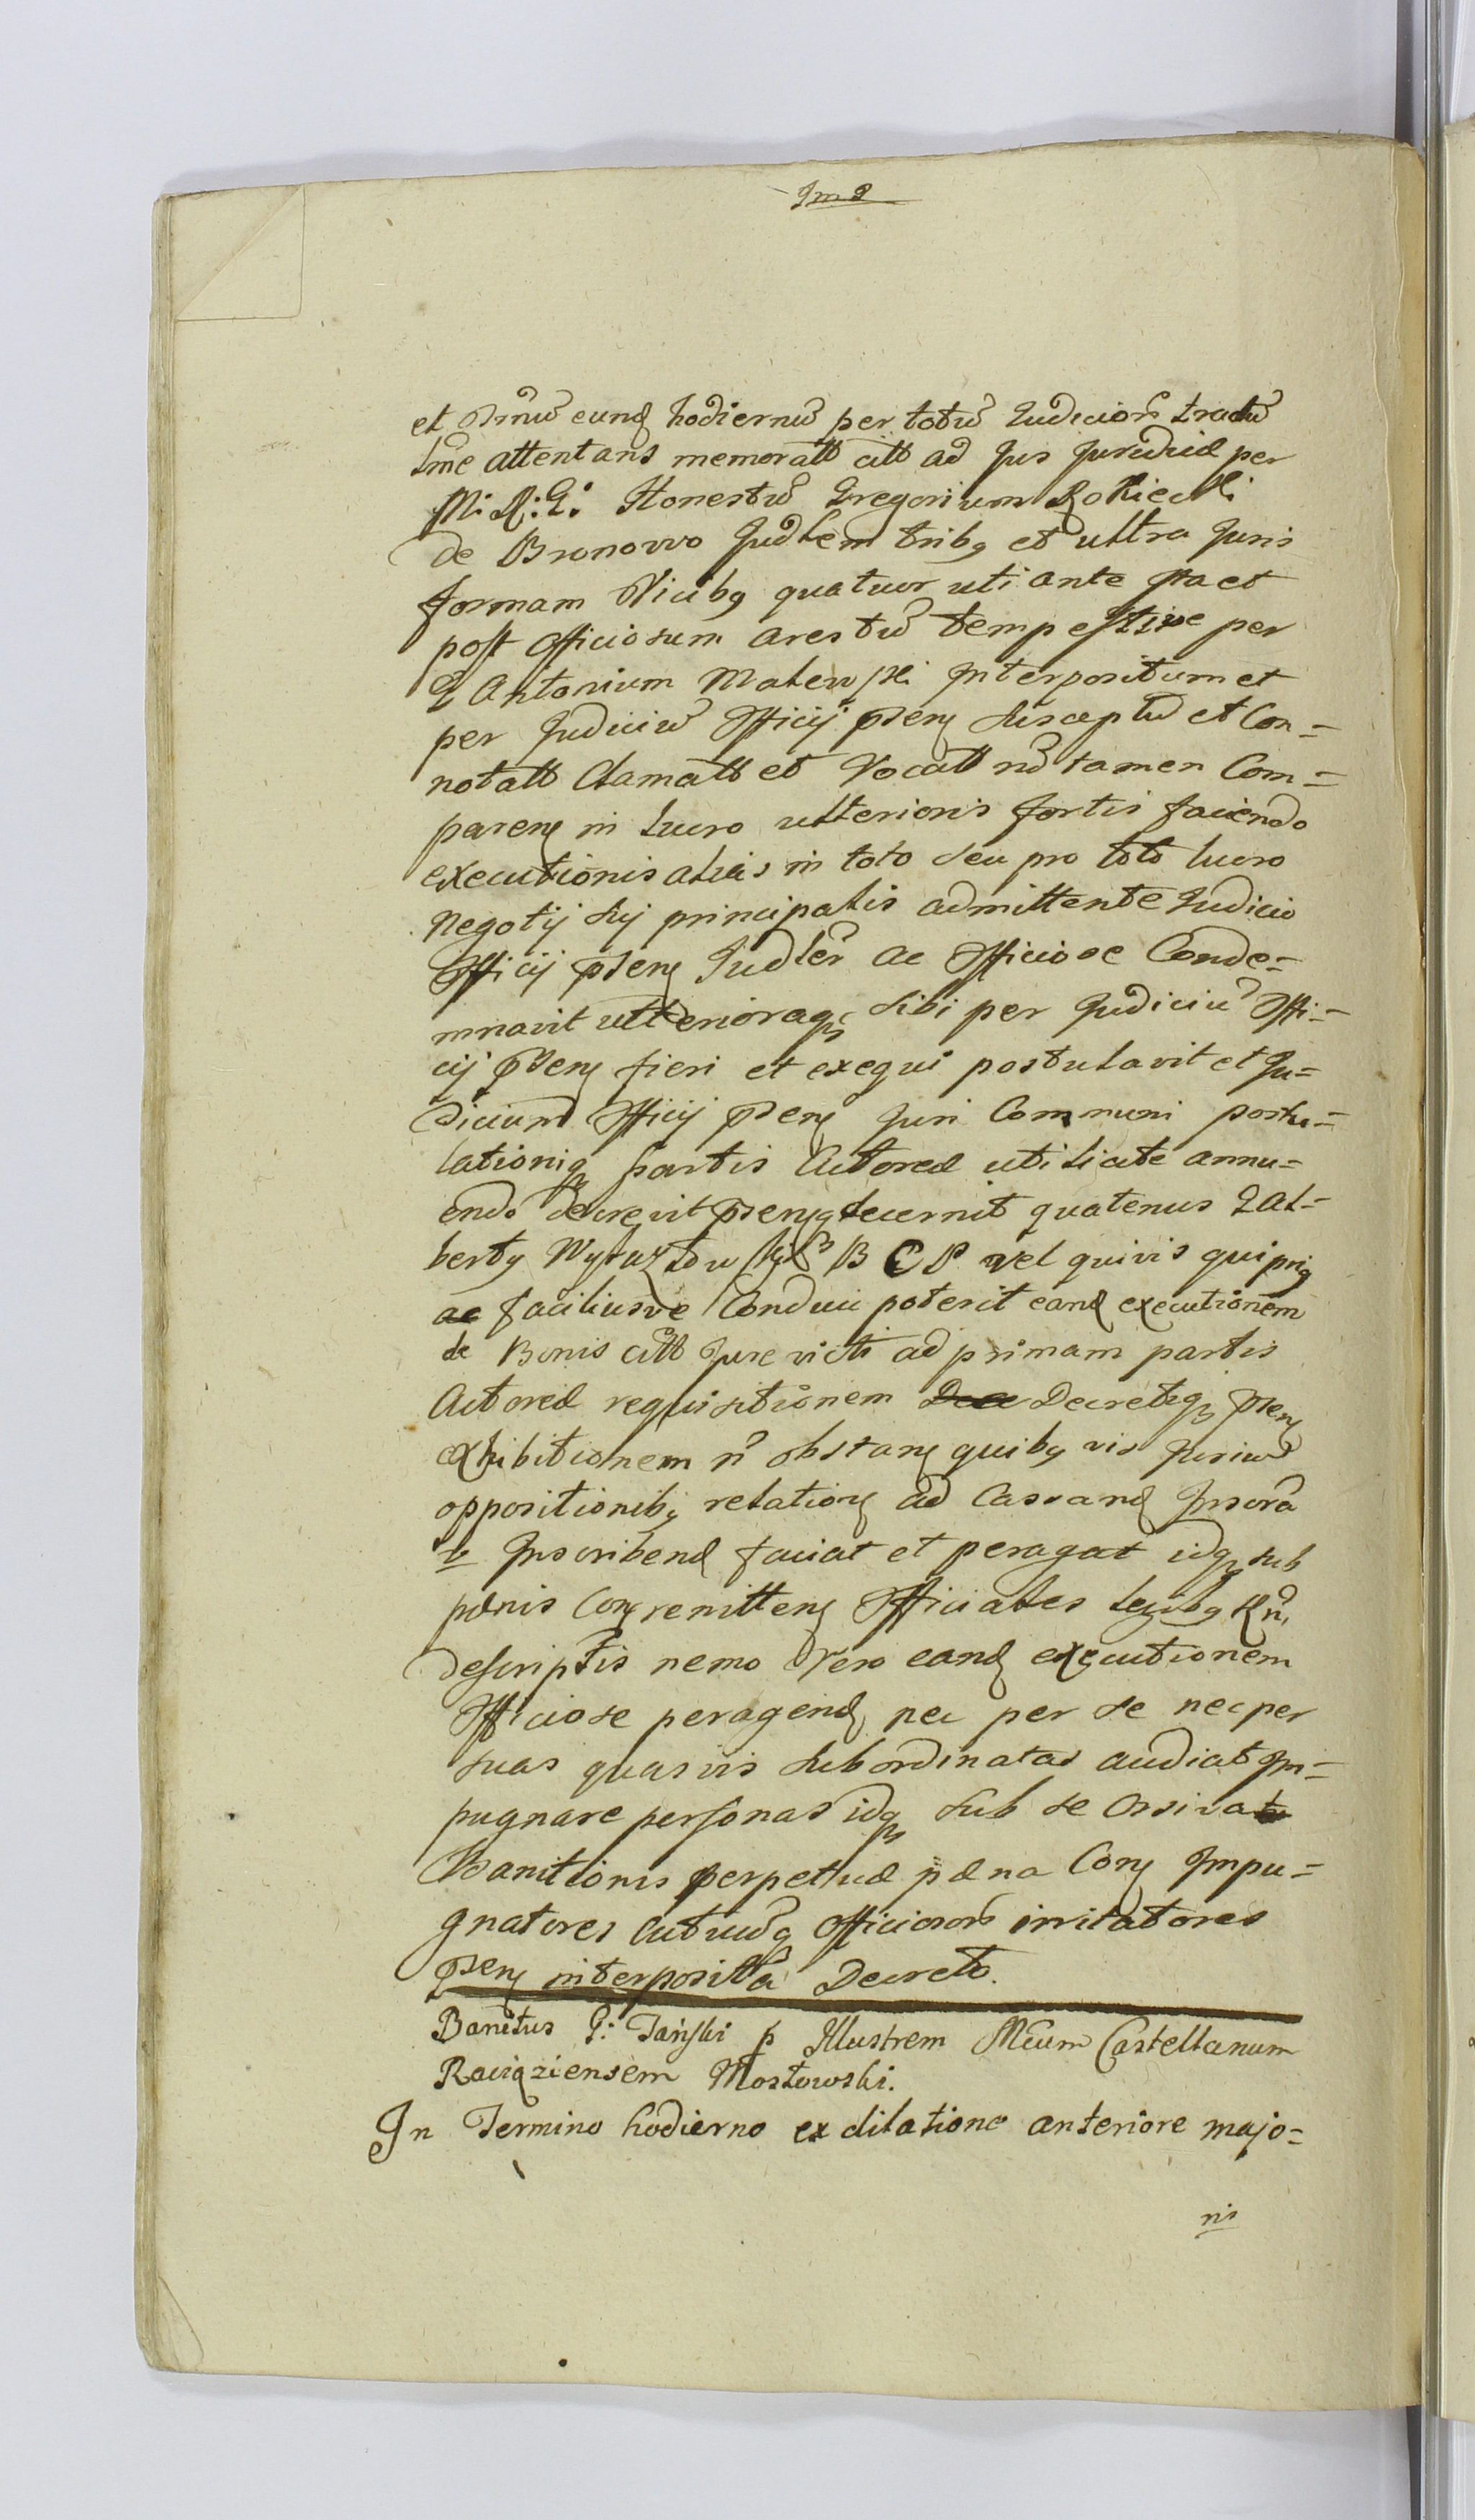 et eund hodiernũ per totũ Judiciorũ tractũ
tme attentans memoratt citt ad Jus Juredicd per
M: R: G: Honestũ Gregorium Rokicki
de Bronowo Judlem tribq et ultra Juris
formam Vicibq quatuor uti ante ita et
post officiosum arestũ tempestive per
G Antonium Interpositum et
per Judiciũ Officij psens susceptũ et Con=
notatt Clamatt et Vocatt nõ tamen Com=
parens in lucro ulterioris fortis faciendo
executionis alias in toto seu pro toto lucro
Negotij sui principalis admittente Judicio
Officij psens Judler ac Officiose Conde=
mnavit ulterioraqs sibi per Judiciũ Offi=
cij psens fieri et exequi postulavit et Ju=
dicium Officij psens Juri Communi postu=
lationiq partis Actored utilicate annu=
endo decrevit psensq decernit quatenus G Al=
bertq B C P vel quivis qui priq
ac faciliusve Conduci poterit eand executionem
de Bonis citt Jure victi ad primam partis
Actored requisitionem Dec Decretiqs psens
exhibitionem nõ obstans quibq vis Juriũ
oppositionibq relations ad Cassand
Inscribend faciat et peragat idqs sub
pœnis Cons renittens Officiales legibq Rñi
descriptis nemo Vero eand executionem
Officiose peragend nec per se nec per
suas quasvis subordinatas audiat Im=
pugnare personas idqs sub se
Banitionis perpetuæ pœna Cons Impu=
gnatores officiosorũ irritatores
psens interposita Decreto.
Banitus G: Tański p Illustrem Mcum Castellanum
Raciąziensem Mostowski.
In Termino hodierno ex dilatione anteriore majo=
ris